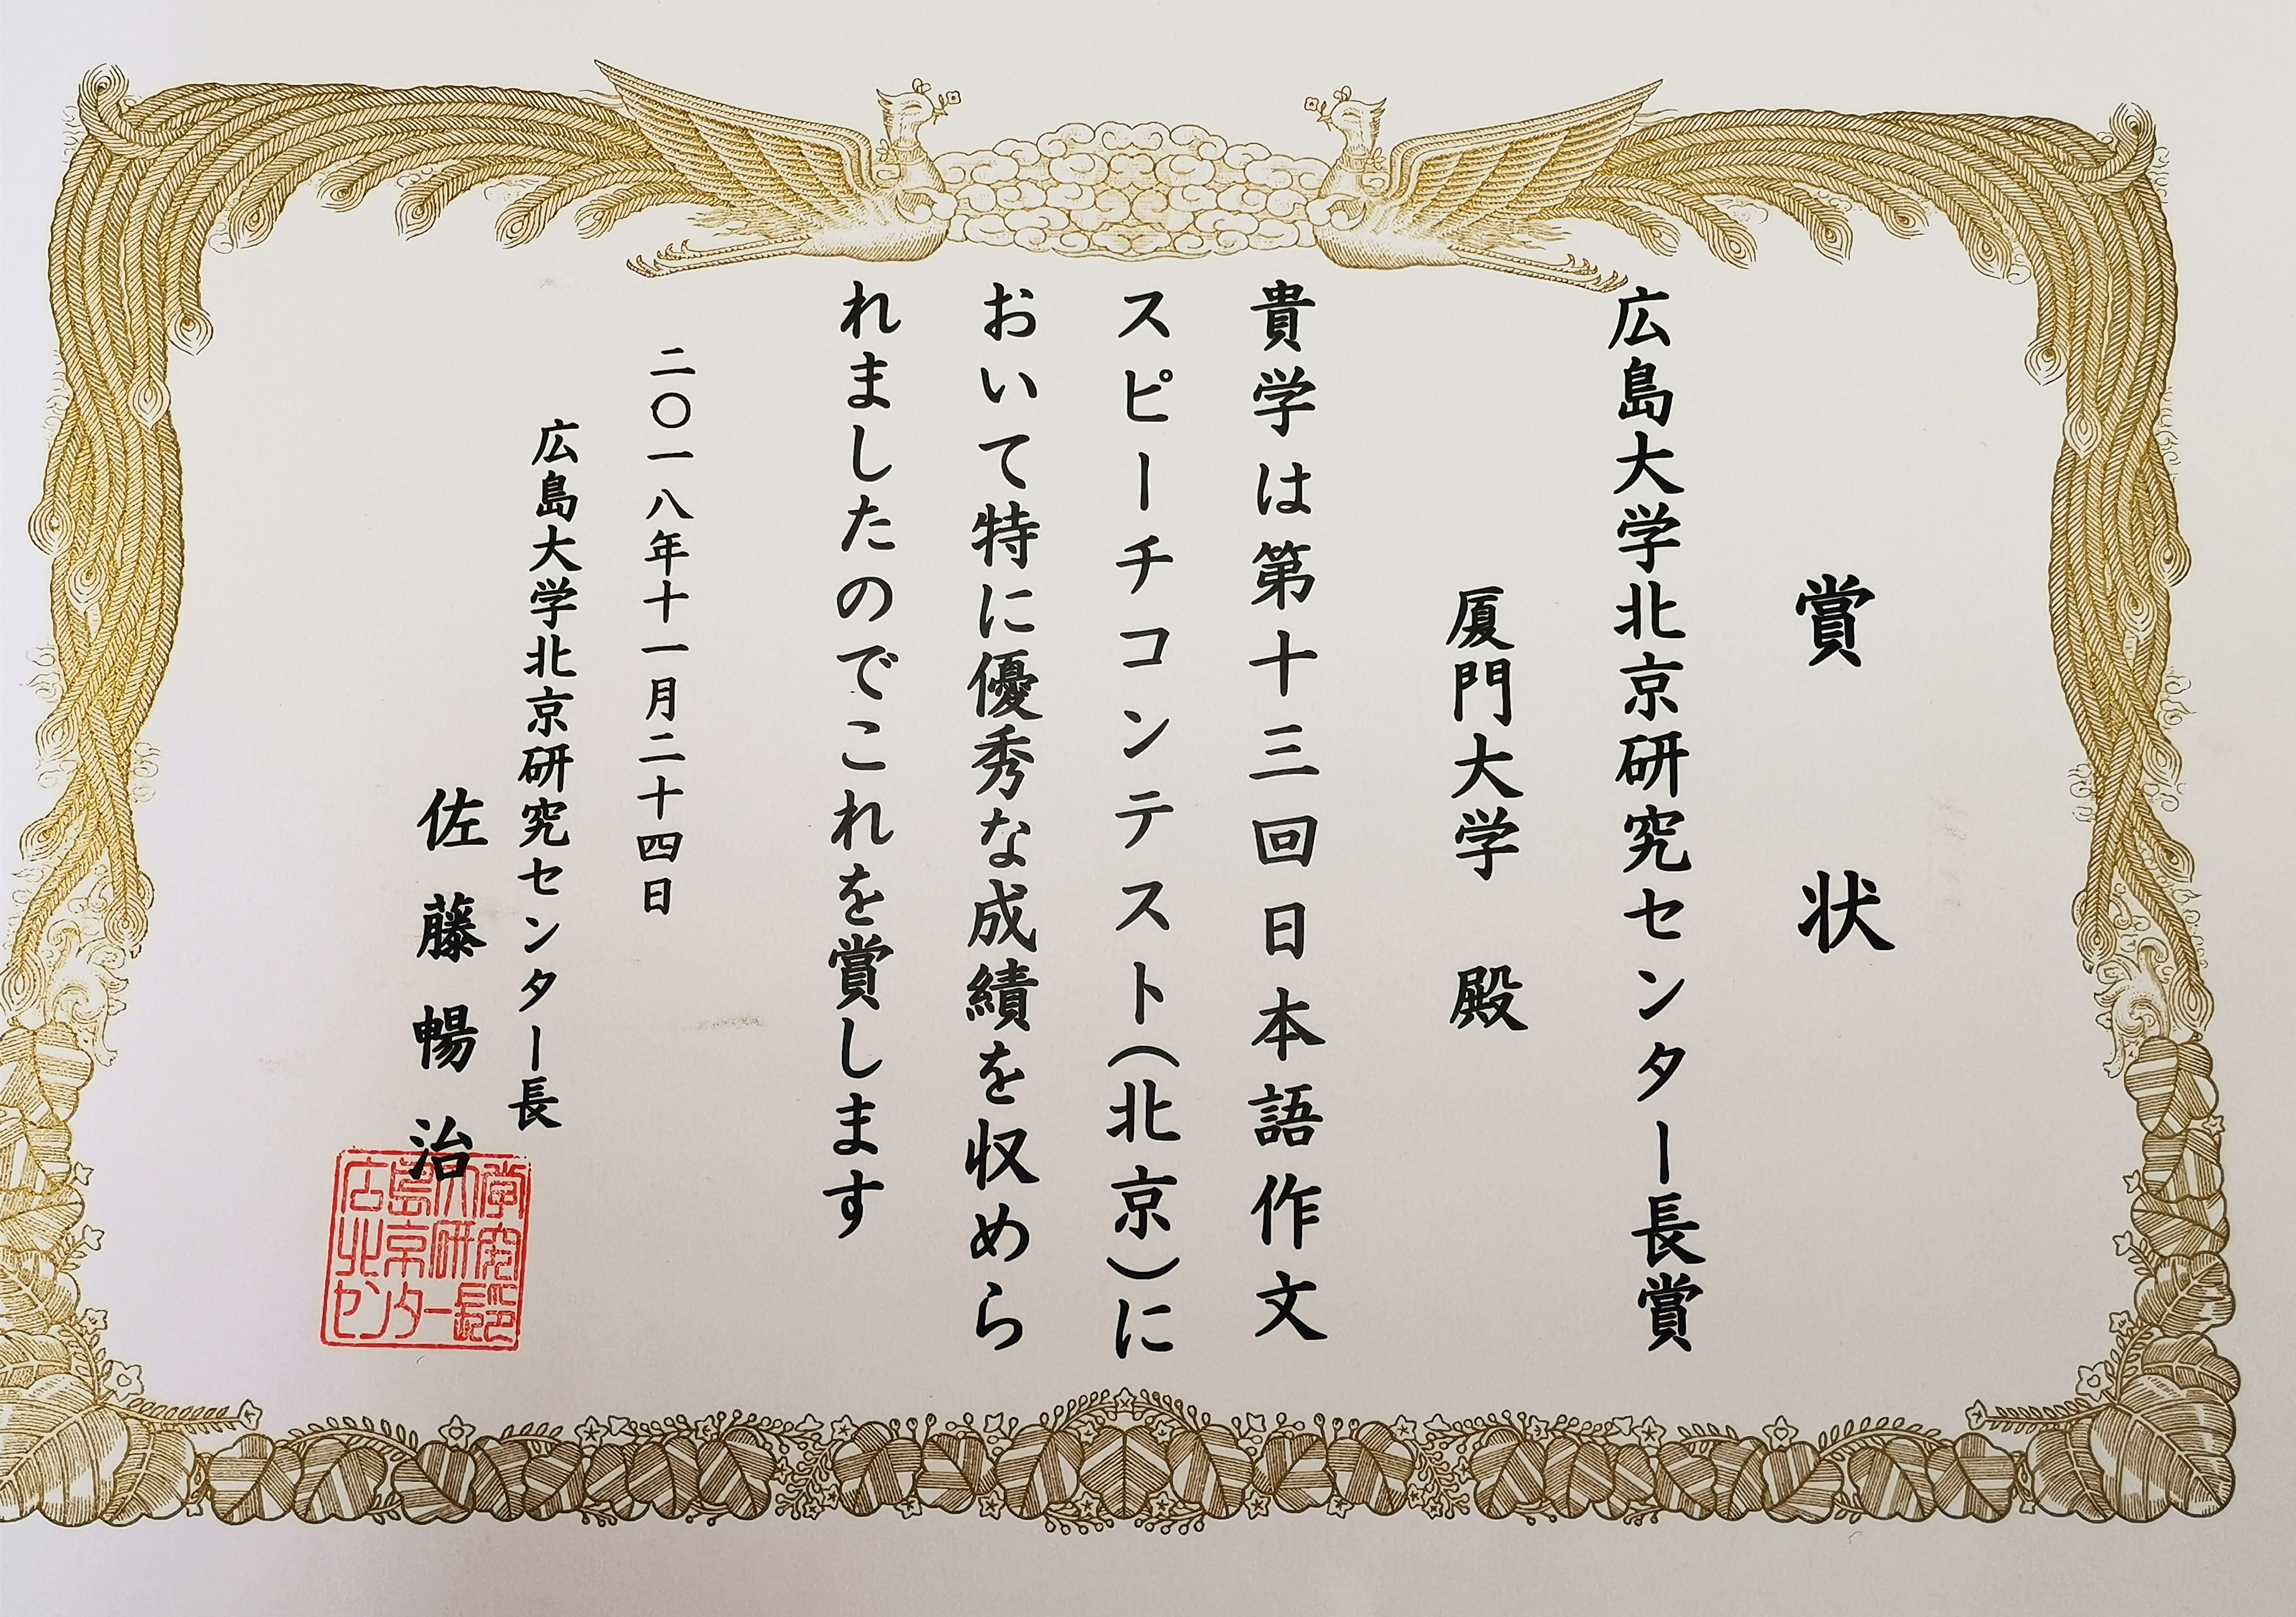 賞状
広島大学北京研究センター長賞
厦門大学 殿
貴学は第十三回日本語作文
スピーチコンテスト（北京）に
おいて特に優秀な成績を収めら
れましたのでこれを賞します
二〇一八年十一月二十四日
広島大学北京研究センター長
佐藤暢治
広島大学
北京研究
センター長印